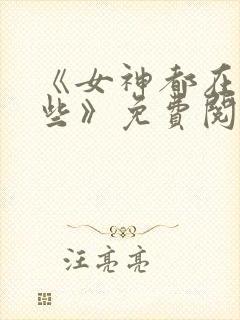 《女神都在
些》免费阅
汪亮亮